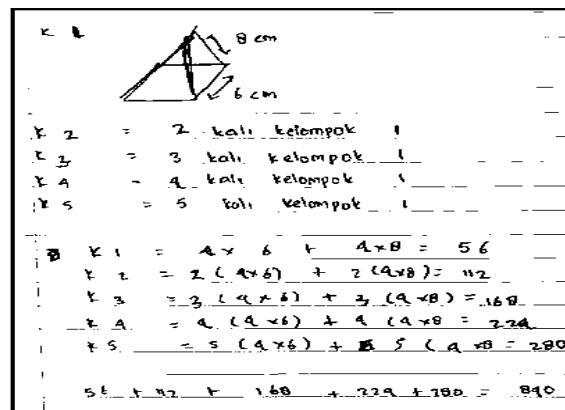 K 1
8 cm
6 cm
K 2 = 2 kali kelompok 1
K 3 = 3 kali kelompok 1
K 4 = 4 kali kelompok 1
K 5 = 5 kali kelompok 1
K 1 = 4 x 6 + 4 x 8 = 56
K 2 = 2 (4 x 6) + 2 (4 x 8) = 112
K 3 = 3 (4 x 6) + 3 (4 x 8) = 168
K 4 = 4 (4 x 6) + 4 (4 x 8 = 224
K 5 = 5 (4 x 6) + 5 (4 x 8 = 280
56 + 112 + 168 + 224 + 280 = 840